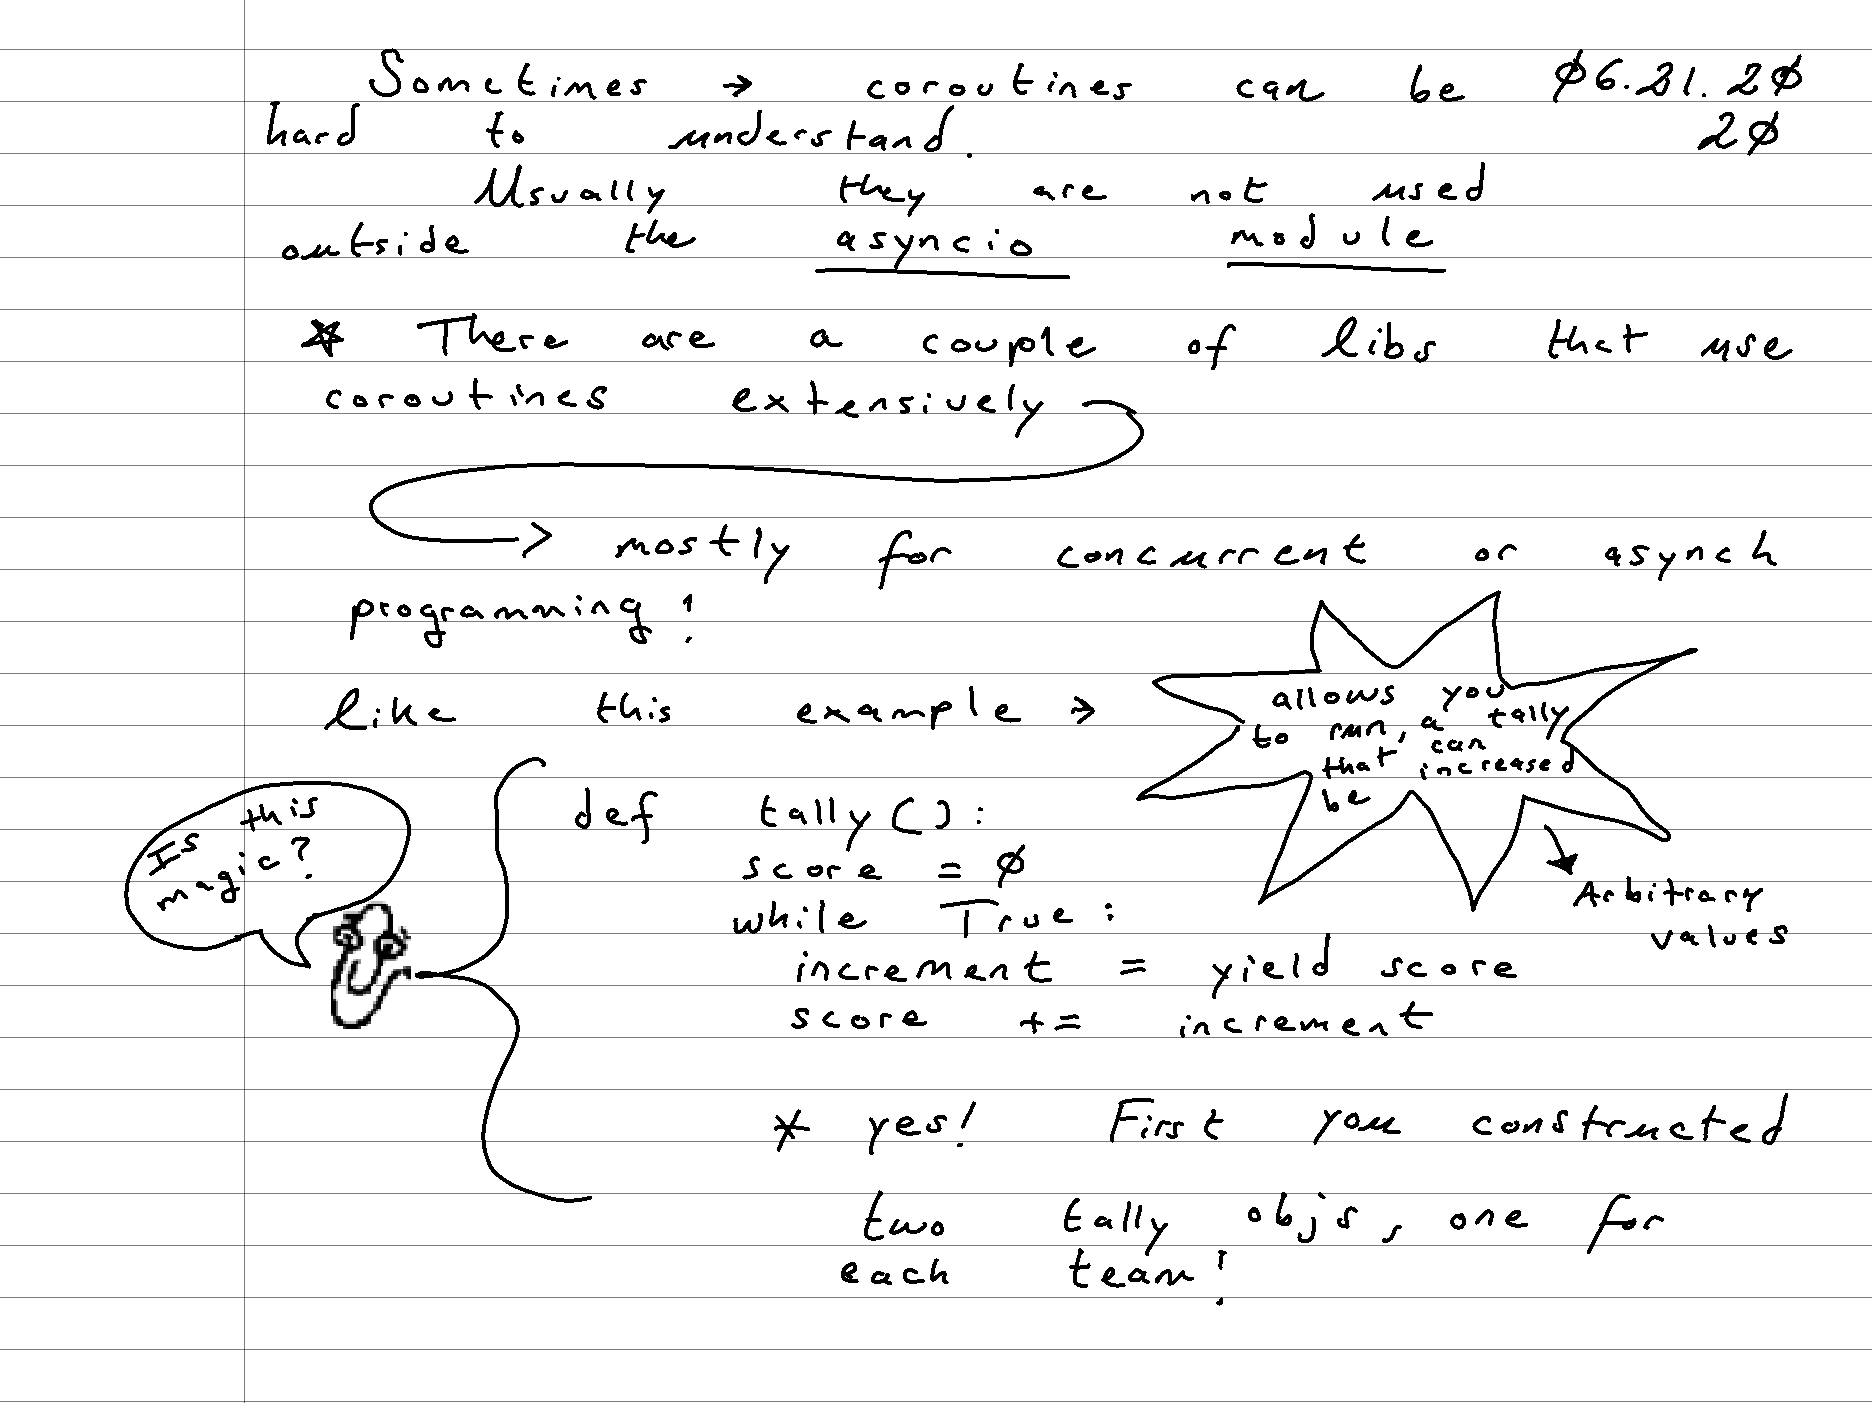 Sometimes → coroutines can be 06.21.20
hard to understand. 20
Usually they are not used
outside the asyncio module
* There are a couple of libs that use
coroutines extensively
→ mostly for concurrent or asynch
programming!
like this example →
allows you
to run, a tally
that can
be increased
Arbitrary
values
Is this
magic?
def tally():
score = 0
while True:
increment = yield score
score += increment
* yes! First you constructed
two tally objs, one for
each team!